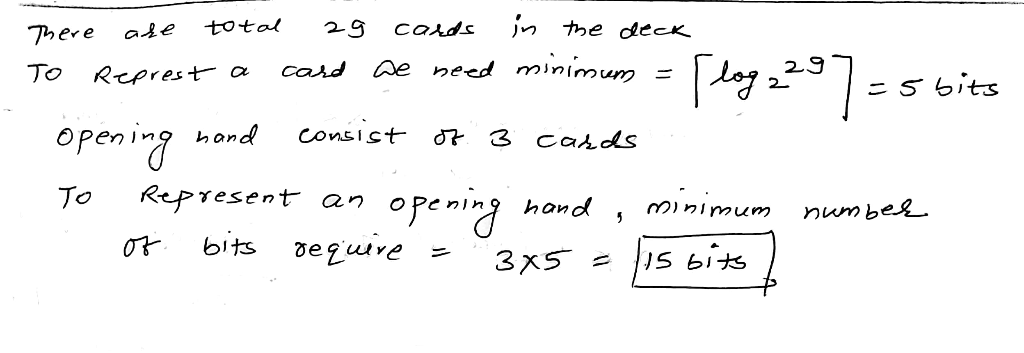 There are total 29 cards in the deck
To Represt a card we need minimum = ⌈log₂ 29⌉ = 5 bits
opening hand consist of 3 cards
To Represent an opening hand, minimum number
of bits require = 3x5 = 15 bits